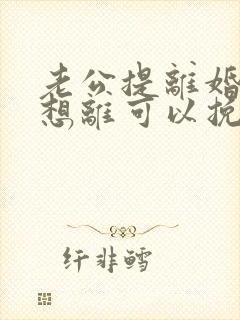 老公提離婚
想離可以挽
纤非鳕